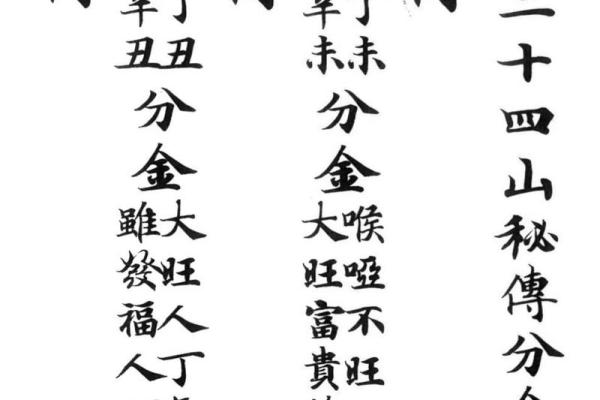 二十四山秘傳分金
丁未
辛未
分金
喉啞不旺
大旺富貴
丁丑
辛丑
分金
大旺人丁
雖發福人